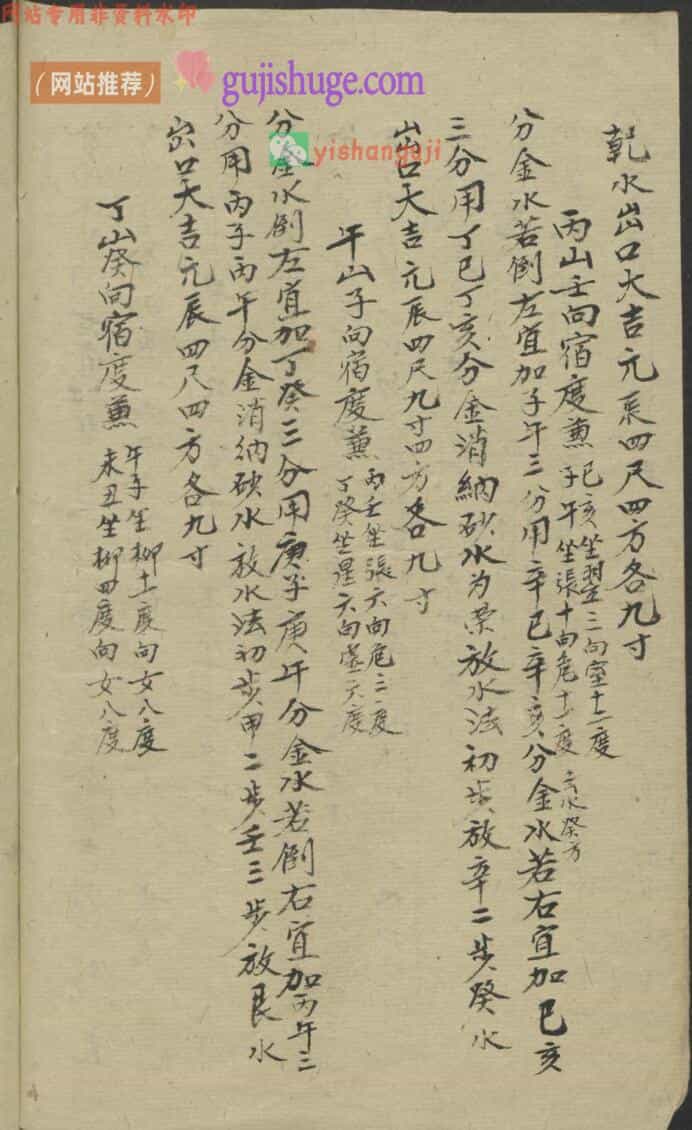 网站专用非资料水印
（网站推荐）
gujishuge.com
yishanguji
乾水出口大吉元辰四尺四方各九寸
丙山壬向宿度兼巳亥坐翌三向室十二度
子午坐張十向危十二度
去水癸方
分金水若倒左宜加子午三分用辛巳辛亥分金水若右宜加巳亥
三分用丁巳丁亥分金消納砂水为荣放水法初步放辛二步癸水
出口大吉元辰四尺九寸四方各九寸
午山子向宿度兼丙壬坐張六向危三度
丁癸坐星六向虚六度
分金水倒左宜加丁癸三分用庚子庚午分金水若倒右宜加丙午三
分用丙子丙午分金消納砂水放水法初步甲二步壬三步放艮水
出口大吉元辰四尺四方各九寸
丁山癸向宿度兼午子坐柳十一度向女八度
未丑坐柳四度向女八度